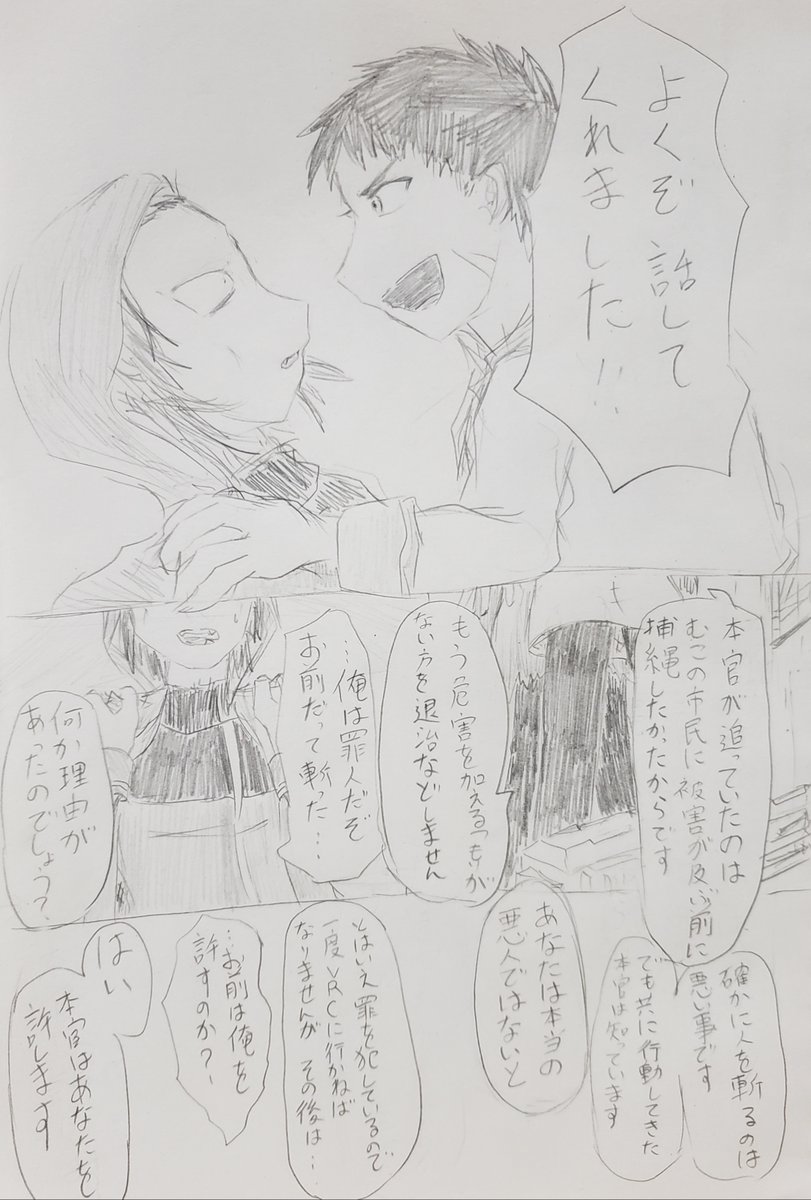 よくぞ話して
くれました!!
本官が追っていたのは
むこの市民に被害が及ぶ前に
捕縄したかったからです
もう危害を加えるつもりが
ない方を退治などしません
…俺は罪人だぞ
お前だって斬った…
何か理由が
あったのでしょう?
確かに人を斬るのは
悪い事です
でも共に行動してきた
本官は知っています
あなたは本当の
悪人ではないと
とはいえ罪を犯しているので
一度VRCに行かねば
なりませんが その後は…
…お前は俺を
許すのか?
はい
本官はあなたを
許します